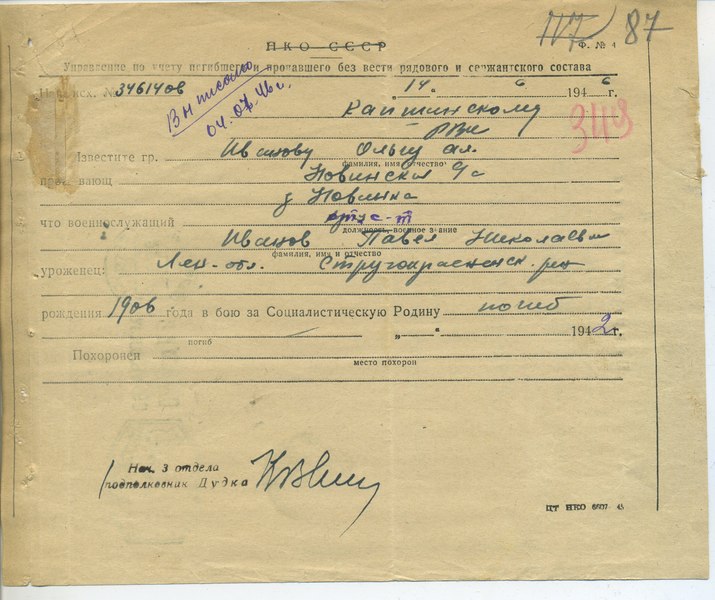 87
НКО СССР Ф. № 4
Управление по учету погибшего и пропавшего без вести рядового и сержантского состава
исх. № 34614 06 „14" 6 1946 г.
Вн письмо
04.07.46 г.
РВК
349
Известите гр. Иванову Ольгу Ал.
фамилия, имя, отчество
Новинский с/с
д Новинка
что военнослужащий
должность, военное звание
Иванов Павел Николаевич
фамилия, имя и отчество
уроженец: Лен-обл. Стругокрасненск. рна
рождения 1906 года в бою за Социалистическую Родину погиб
„ " 1942 г.
погиб
Похоронен
место похорон
Нач. 3 отдела
подполковник Дудка
ЦТ НКО 45